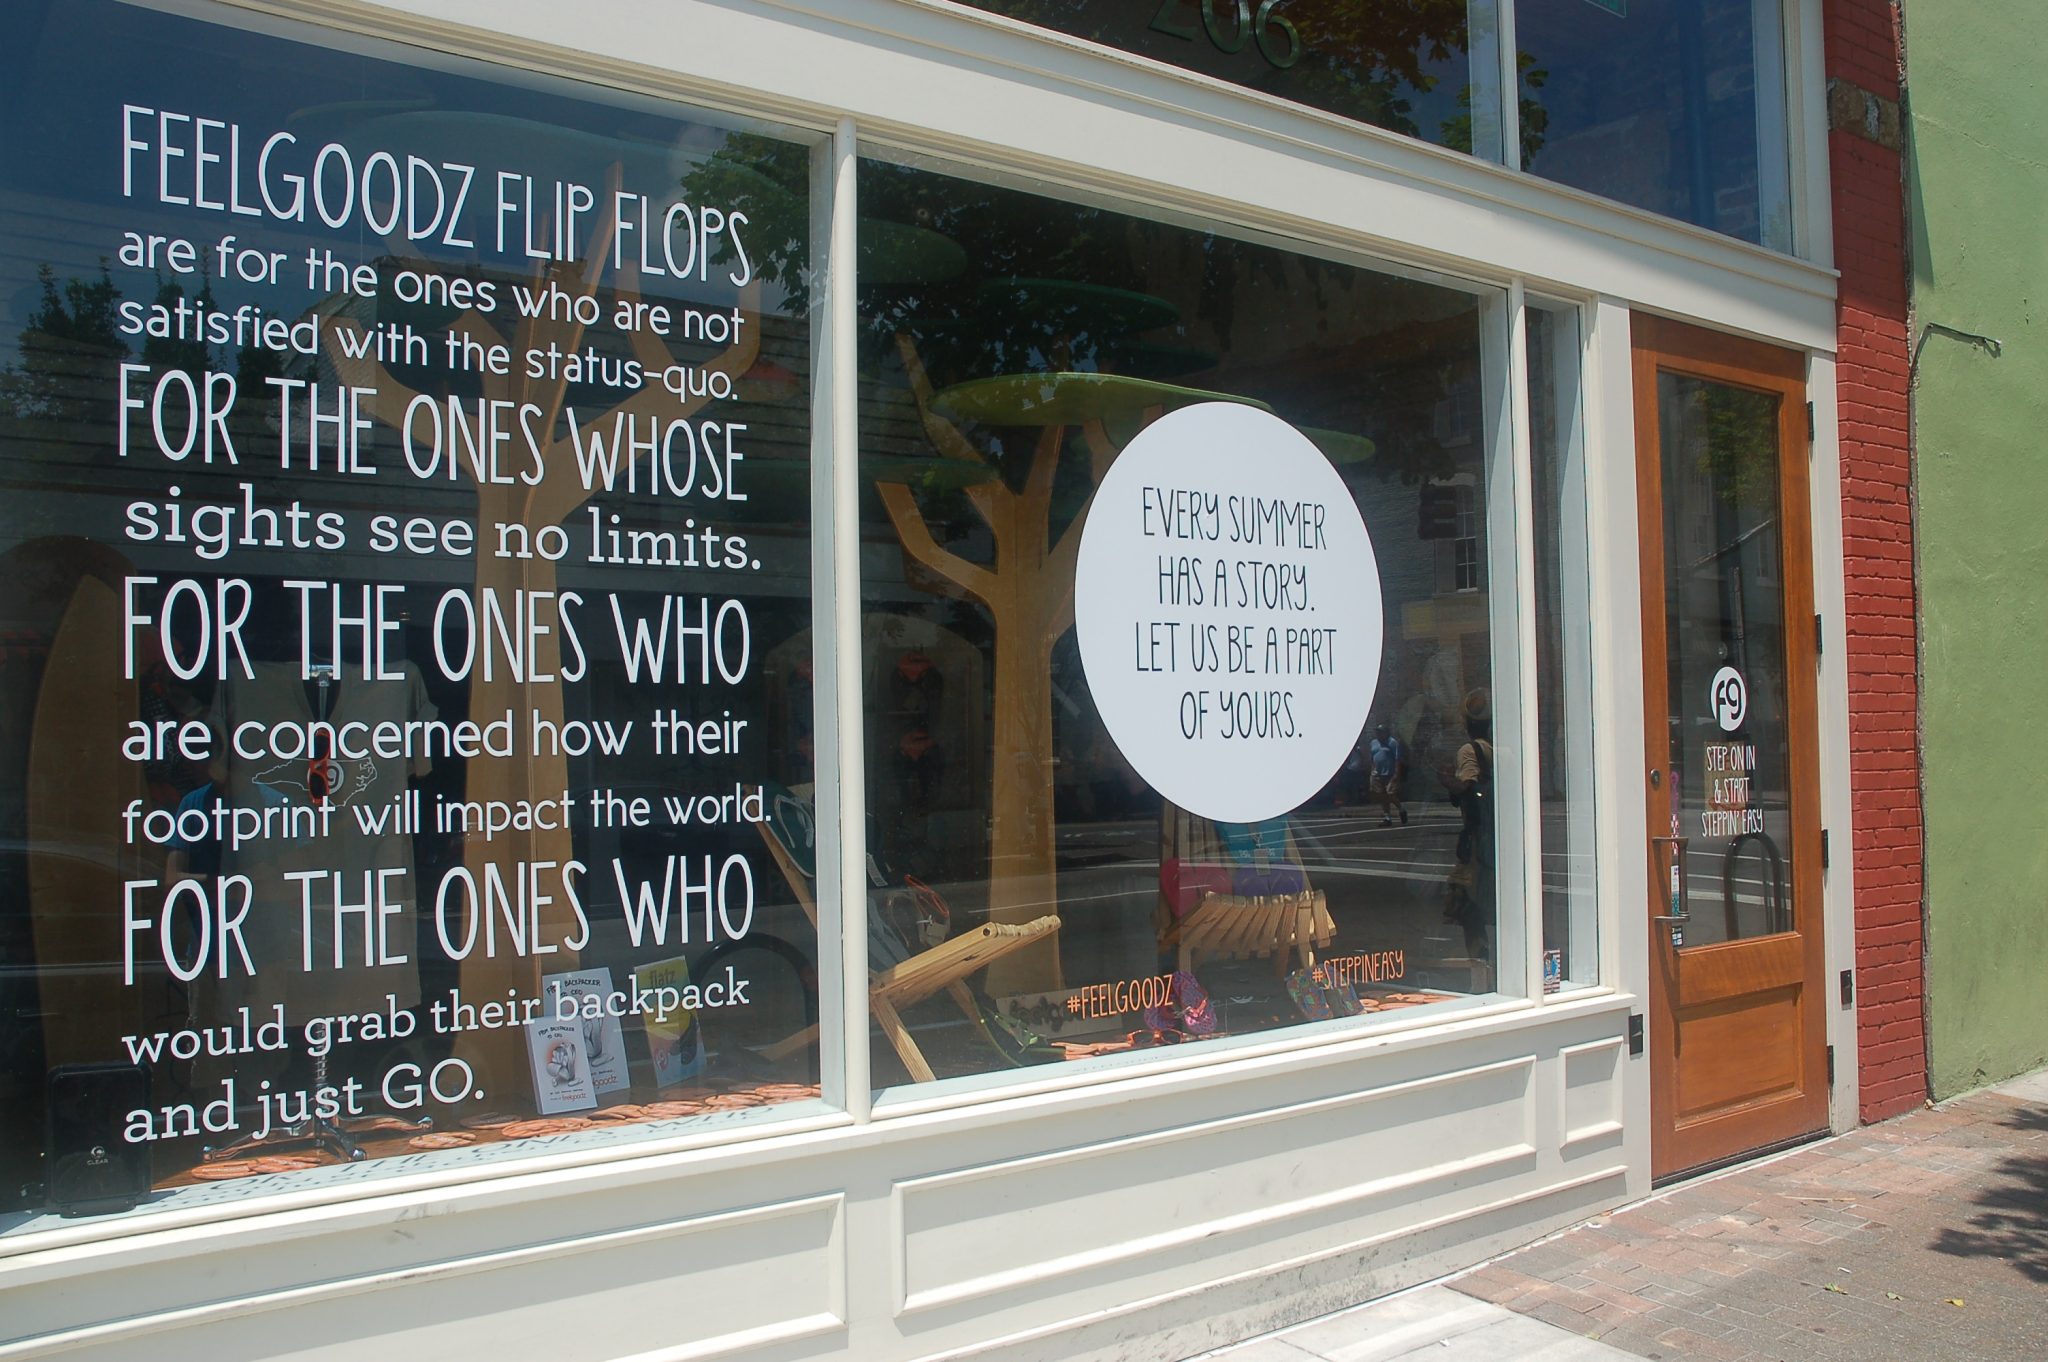 206
FEELGOODZ FLIP FLOPS
are for the ones who are not
satisfied with the status-quo.
FOR THE ONES WHOSE
sights see no limits.
FOR THE ONES WHO
are concerned how their
footprint will impact the world.
FOR THE ONES WHO
would grab their backpack
and just GO.
EVERY SUMMER
HAS A STORY.
LET US BE A PART
OF YOURS.
#FEELGOODZ
#STEPPINEASY
fg
STEP ON IN
& START
STEPPIN' EASY
flatz
FROM BACKPACKER
TO CEO
feelgoodz
CLEAR